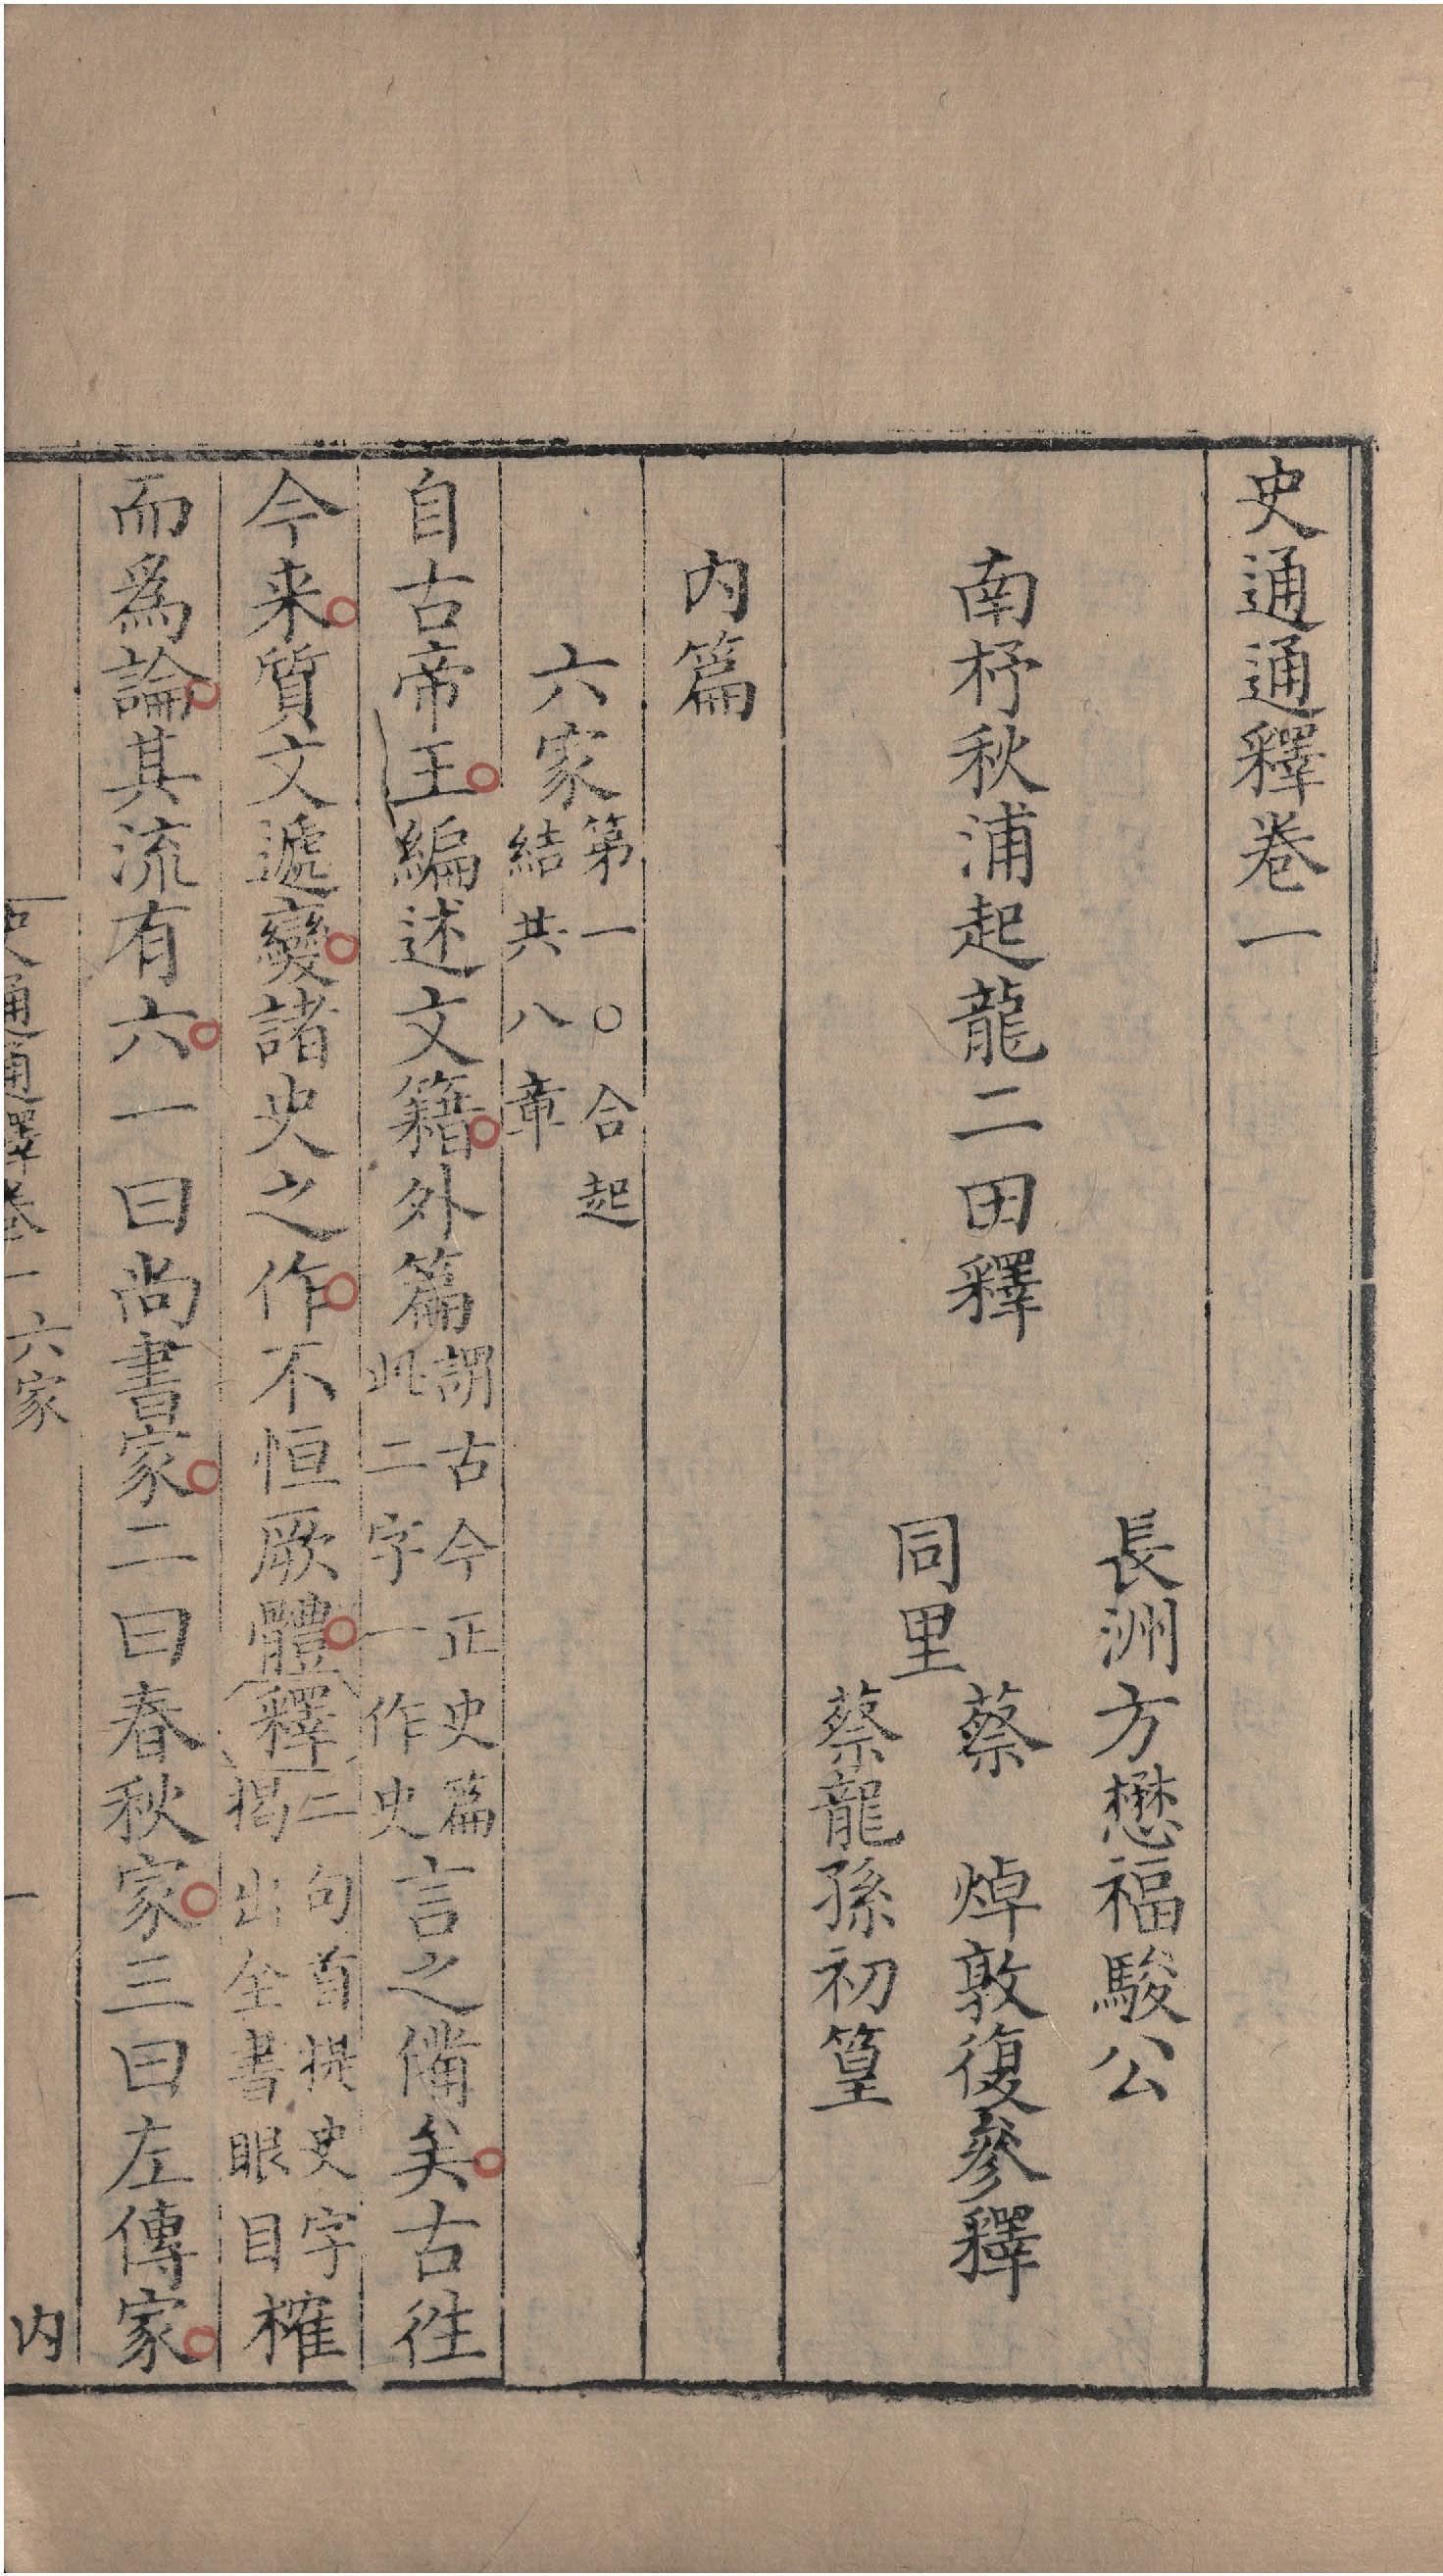 史通通釋卷一
長洲方懋福駿公
南杼秋浦起龍二田釋
同里
蔡　焯敦復參釋
蔡龍孫初篁
内篇
六家
第一○合起
結共八章
自古帝王編述文籍外篇
謂古今正史篇
此二字一作史
言之備矣古往
今来質文遞變諸史之作不恒厥體
釋
二句首提史字
揭出全書眼目
榷
而爲論其流有六一曰尚書家二曰春秋家三曰左傳家
史通通釋卷一　六家　一　内